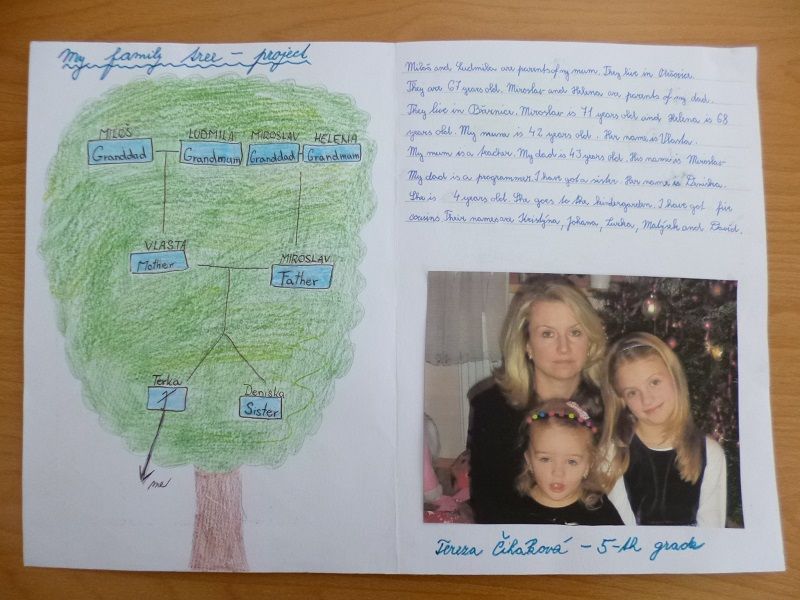 My family tree - project
MILOŠ
LUDMILA
MIROSLAV
HELENA
Granddad
Grandmum
Granddad
Grandmum
VLASTA
MIROSLAV
Mother
Father
Terka
Deniška
I
Sister
me
Miloš and Ludmila are parents of my mum. They live in
They are 67 years old. Miroslav and Helena are parents of my dad.
They live in Bžarnice. Miroslav is 71 years old and Helena is 68
years old. My mum is 42 years old. Her name is Vlasta.
My mum is a teacher. My dad is 43 years old. His name is Miroslav
My dad is a programmer. I have got a sister. Her name is Deniska.
She is 4 years old. She goes to the kindergarden. I have got five
cousins. Their names are Kristýna, Johana, Lucka, Matýsek and David.
Tereza Čiháková - 5-th grade